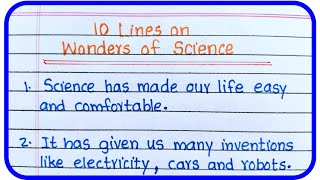 10 Lines on
Wonders of Science
1. Science has made our life easy
and comfortable.
2. It has given us many inventions
like electricity, cars and robots.